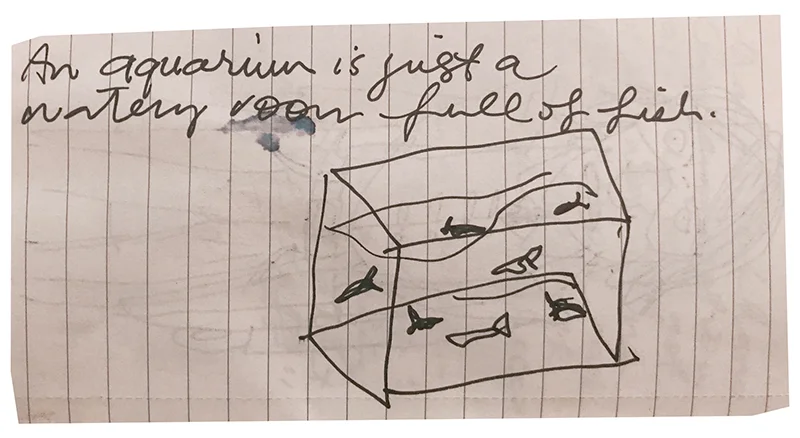 An aquarium is just a
watery room full of fish.